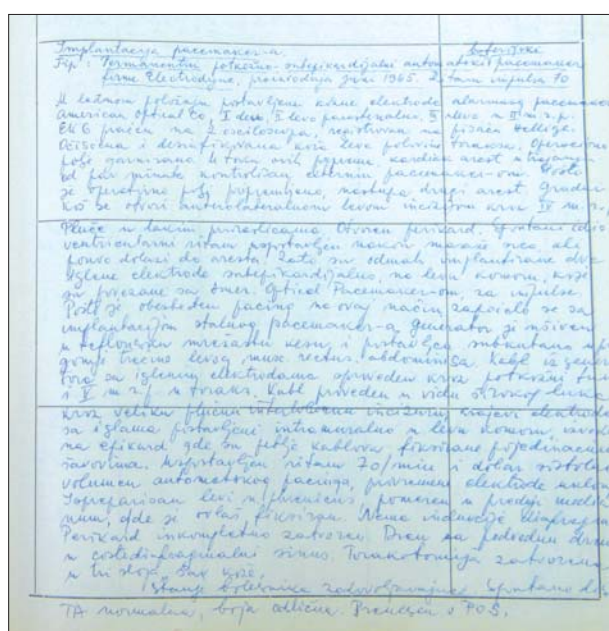 Implantacija pacemaker-a. baterijski
Tip: Permanentni potkožno-subepikardijalni automatski pacemaker
firme Electrodyne, proizvodnja juni 1965. impulsa 70
U ležećem položaju postavljene kožne elektrode alarmnog pacemaker
American Optical Co, I desno, II levo parasternalno, levo u III m.r.p.
EKG praćen na 2 osciloskopa, registrovan na pisaču Hellige.
Očišćena i dezinfikovana koža leve polovine toraksa. Operaciono
polje garnisano. U toku ovih priprema, kardijak arest u trajanju
od par minuta kontrolisan externim pacemaker-om. Pošto
je operativno polje pripremljeno, nastupa drugi arest. Grudni
koš se otvori anterolateralnom levom incizijom kroz IV m.r.p.
Pluće u lakim priraslicama. Otvoren perikard. Spontani idio
ventrikularni ritam uspostavljen nakon masaže srca, ali
ponovo dolazi do aresta. Zato su odmah implantirane dve
iglene elektrode subepikardijalno, na levu komoru, koje
su povezane sa Amer. Optical Pacemaker-om, za impulse.
Pošto je obezbeđen pacing na ovaj način, započelo se sa
implantacijom stalnog pacemaker-a. Generator je ušiven
u teflonsku mrežastu kesu, i postavljen subkutano u
gornjoj trećini levog musc. rectus abdominisa. Kabl iz gener
tora sa iglenim elektrodama sproveden kroz potkožni tu
i V m.r.p. u toraks. Kabl proveden u vidu širokog luka
kroz veliku plućnu interlobarnu incizuru, krajevi elektroda
sa iglama postavljeni intramuralno u levu komoru,
na epikard gde su petlje kablova fiksirane pojedinačnim
šavovima. Uspostavljen ritam 70/min i dobar sistolni
volumen automatskog pacinga, privremene elektrode
Ispreparisan levi n. phrenicus, pomeren u prednji medi
num, gde je ovlaš fiksiran. Nema indukcije dijafragme
Perikard inkompletno zatvoren. Dren na podvodnu drenažu
u costodijafragmalni sinus. Torakotomija zatvorena
u tri sloja. Šav kože.
Stanje bolesnika zadovoljavajuće. Spontano
TA normalna, boja odlična. Prenešen u POS.